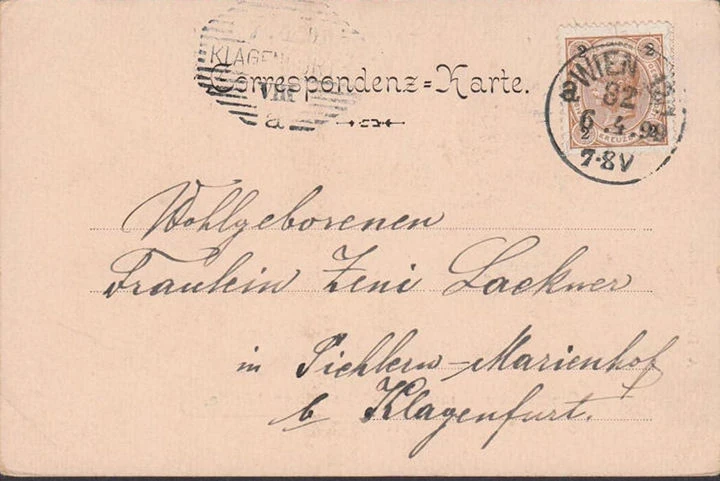 KLAGENFURT
VIII
a
Correspondenz=Karte.
2 2
KREUZER
2 2
WIEN
82
6.4.99
7-8V
Wohlgeborenen
Fräulein Zeni Lackner
in Pichlern-Marienhof
b Klagenfurt.